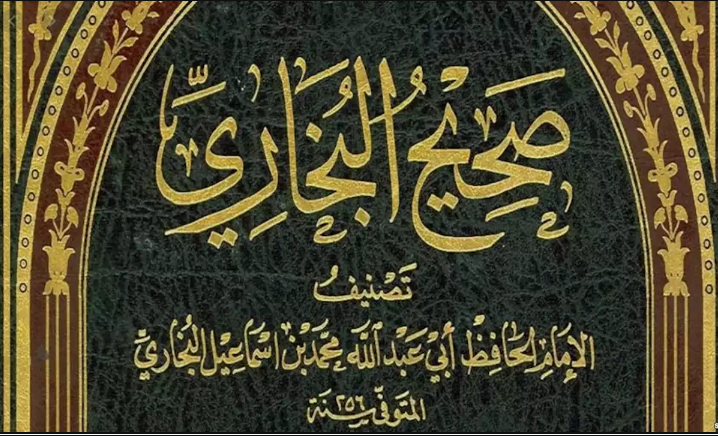 صَحِيحُ البُخَارِيّ
تَصْنِيفُ
الإِمَامِ الحَافِظِ أَبِي عَبْدِ اللَّه مُحَمَّد بْن اسْمَاعِيل البُخَارِيِّ
المتَوَفّىٰ سَنَة ٢٥٦